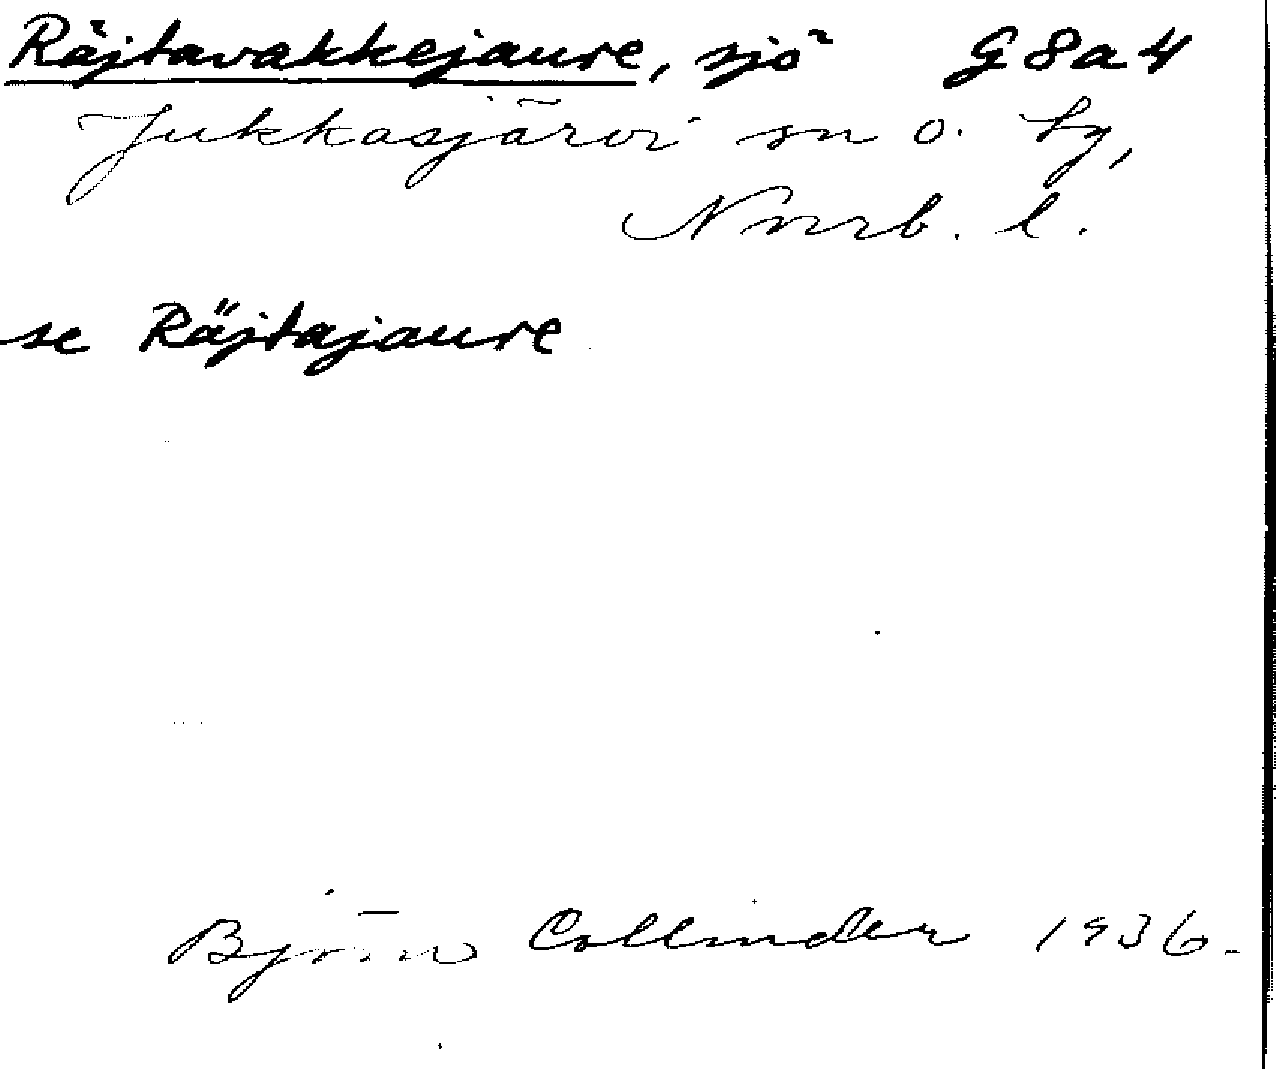 Räjtavakkejaure, sjö G8a4
Jukkasjärvi sn o. lg,
Nnrb. l.
se Räjtajaure
Björn Collinder 1936.